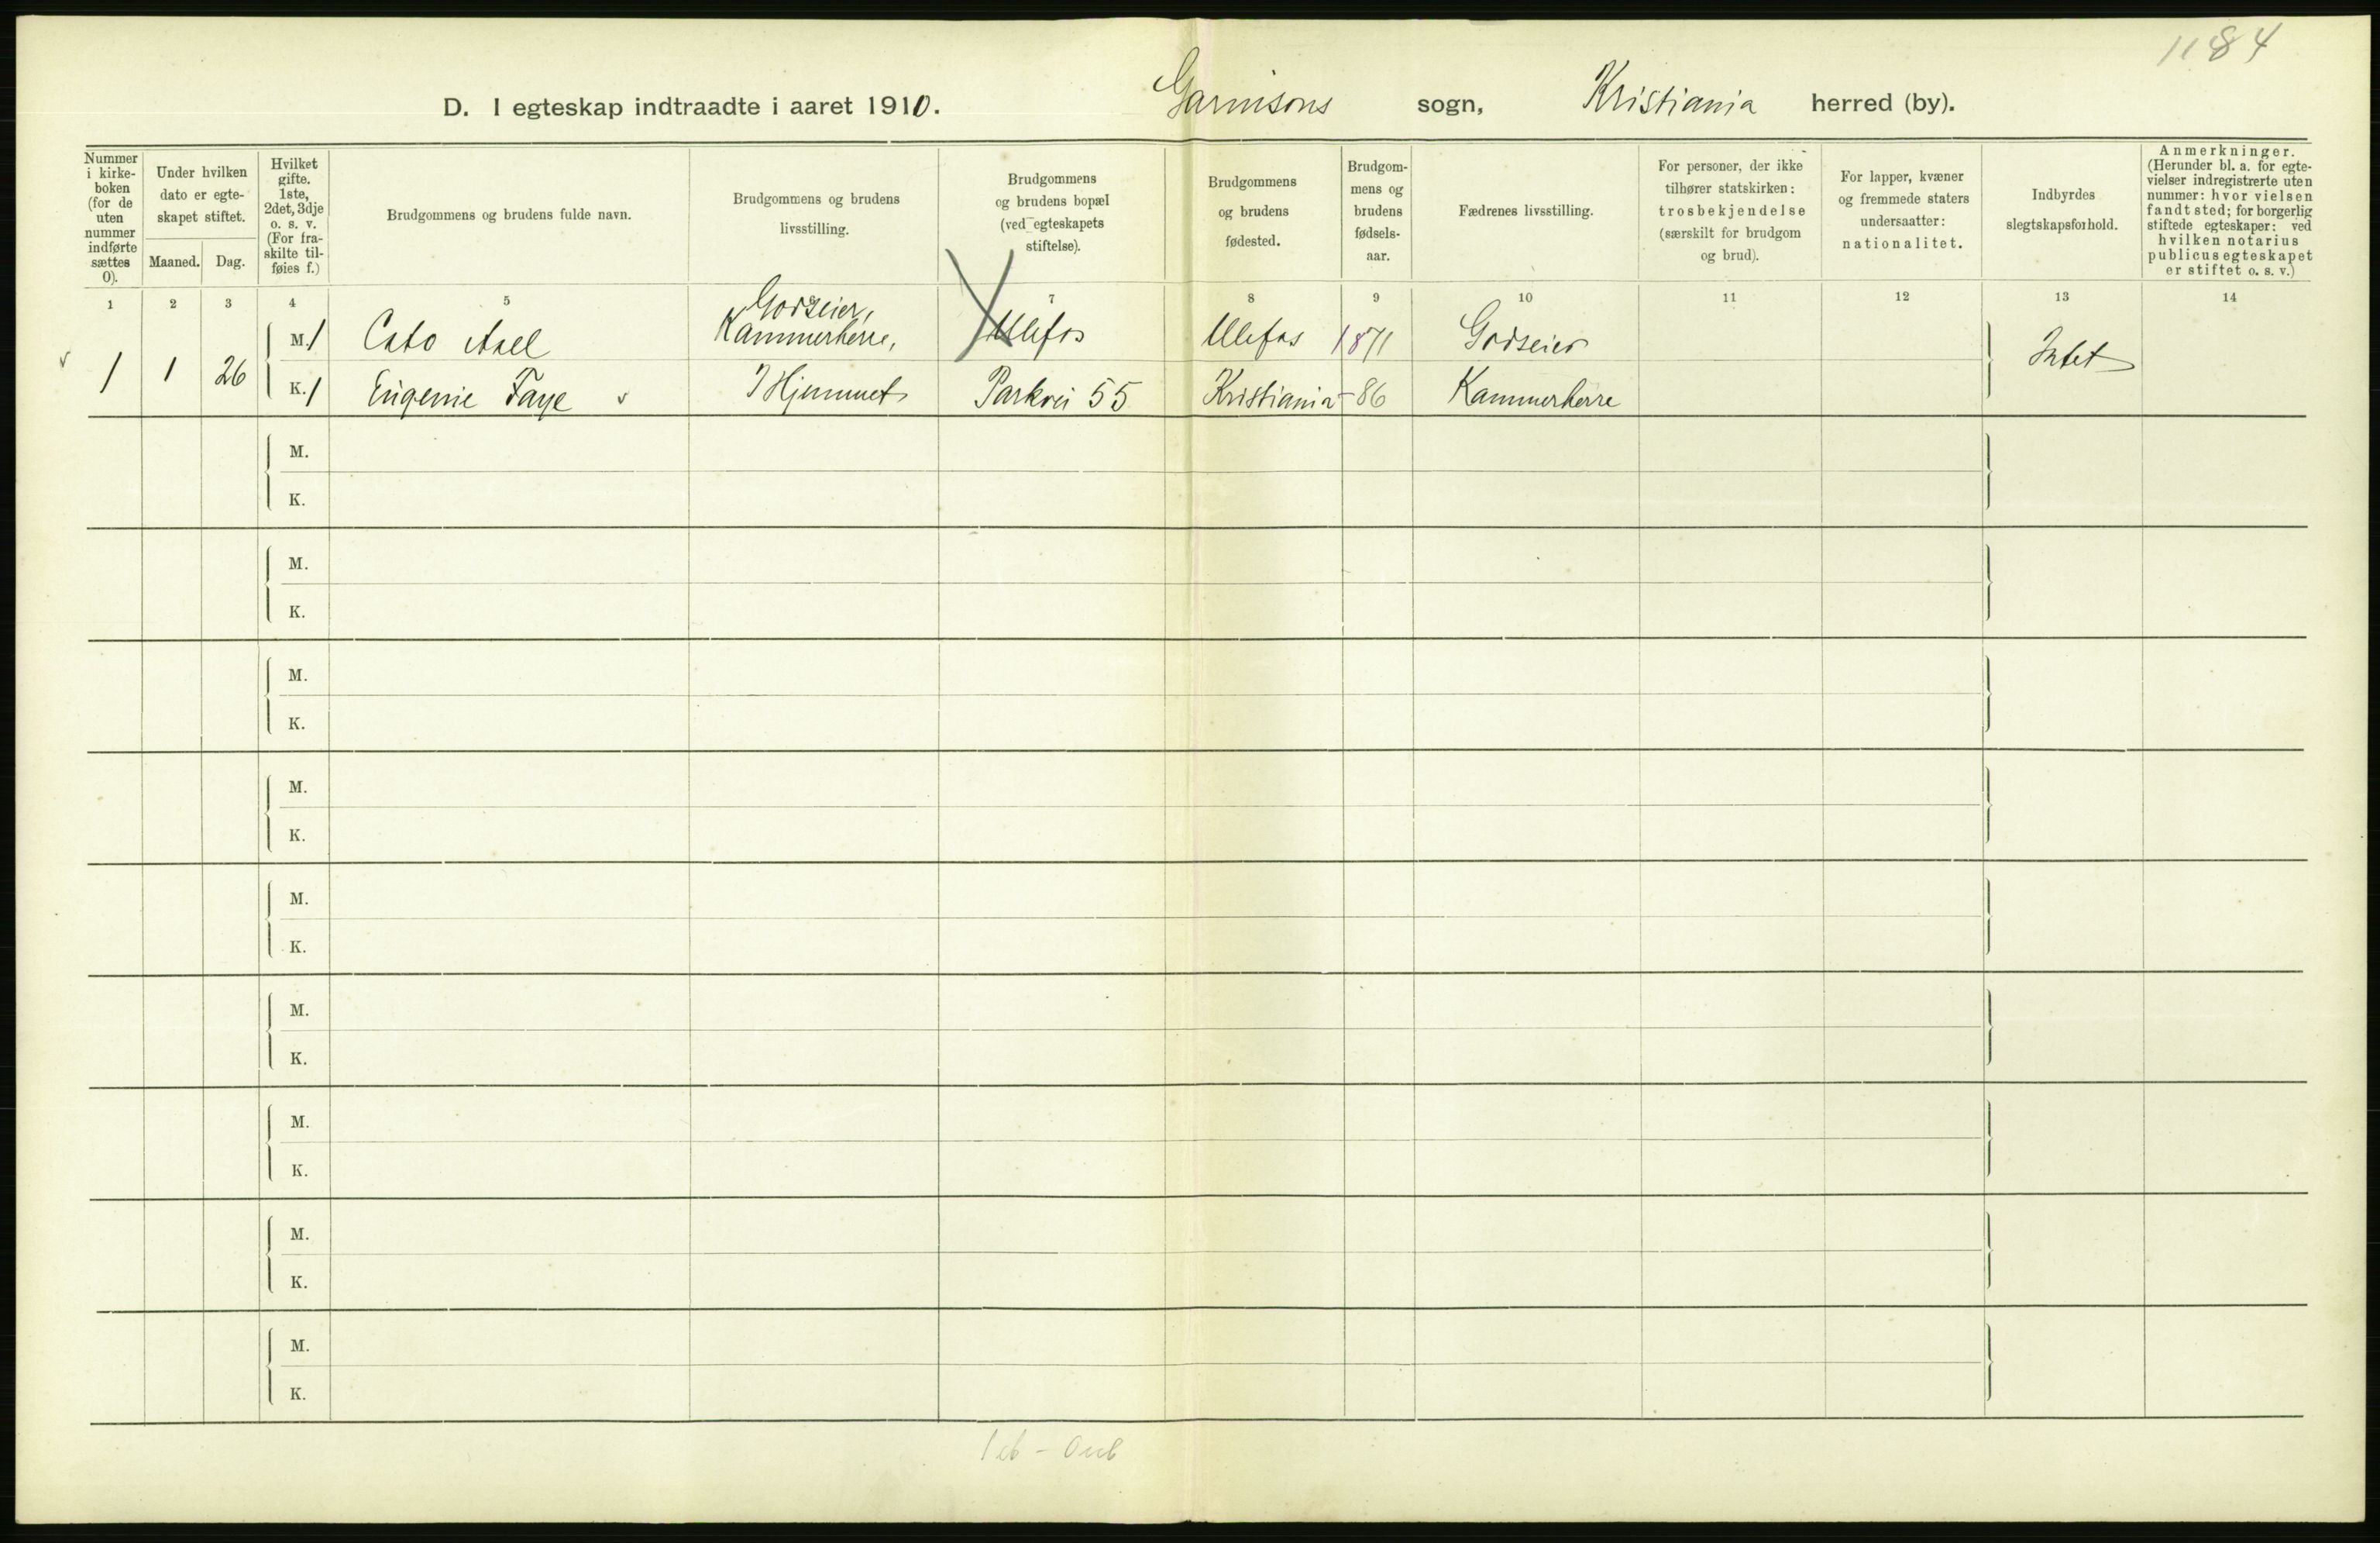 1184
D. I egteskap indtraadte i aaret 1910. Garnisons sogn, Kristiania herred (by).
Nummer i kirke-boken (for de uten nummer indførte sættes 0).
Under hvilken dato er egte-skapet stiftet.
Maaned. Dag.
Hvilket gifte. 1ste, 2det, 3dje o. s. v. (For fra-skilte til-føies f.)
Brudgommens og brudens fulde navn.
Brudgommens og brudens livsstilling.
Brudgommens og brudens bopæl (ved egteskapets stiftelse).
Brudgommens og brudens fødested.
Brudgom-mens og brudens fødsels-aar.
Fædrenes livsstilling.
For personer, der ikke tilhører statskirken: trosbekjendelse (særskilt for brudgom og brud).
For lapper, kvæner og fremmede staters undersaatter: nationalitet.
Indbyrdes slegtskapsforhold.
Anmerkninger. (Herunder bl. a. for egte-vielser indregistrerte uten nummer: hvor vielsen fandt sted; for borgerlig stiftede egteskaper: ved hvilken notarius publicus egteskapet er stiftet o. s. v.)
1 2 3 4 5 6 7 8 9 10 11 12 13 14
M. 1 Cato Aall Godseier, Kammerherre, Ulefos Ulefos 1871 Godseier
1 1 26 Intet
K. 1 Eugenie Faye I Hjemmet Parkvei 55 Kristiania - 86 Kammerherre
M.
K.
M.
K.
M.
K.
M.
K.
M.
K.
M.
K.
M.
K.
M.
K.
M.
K.